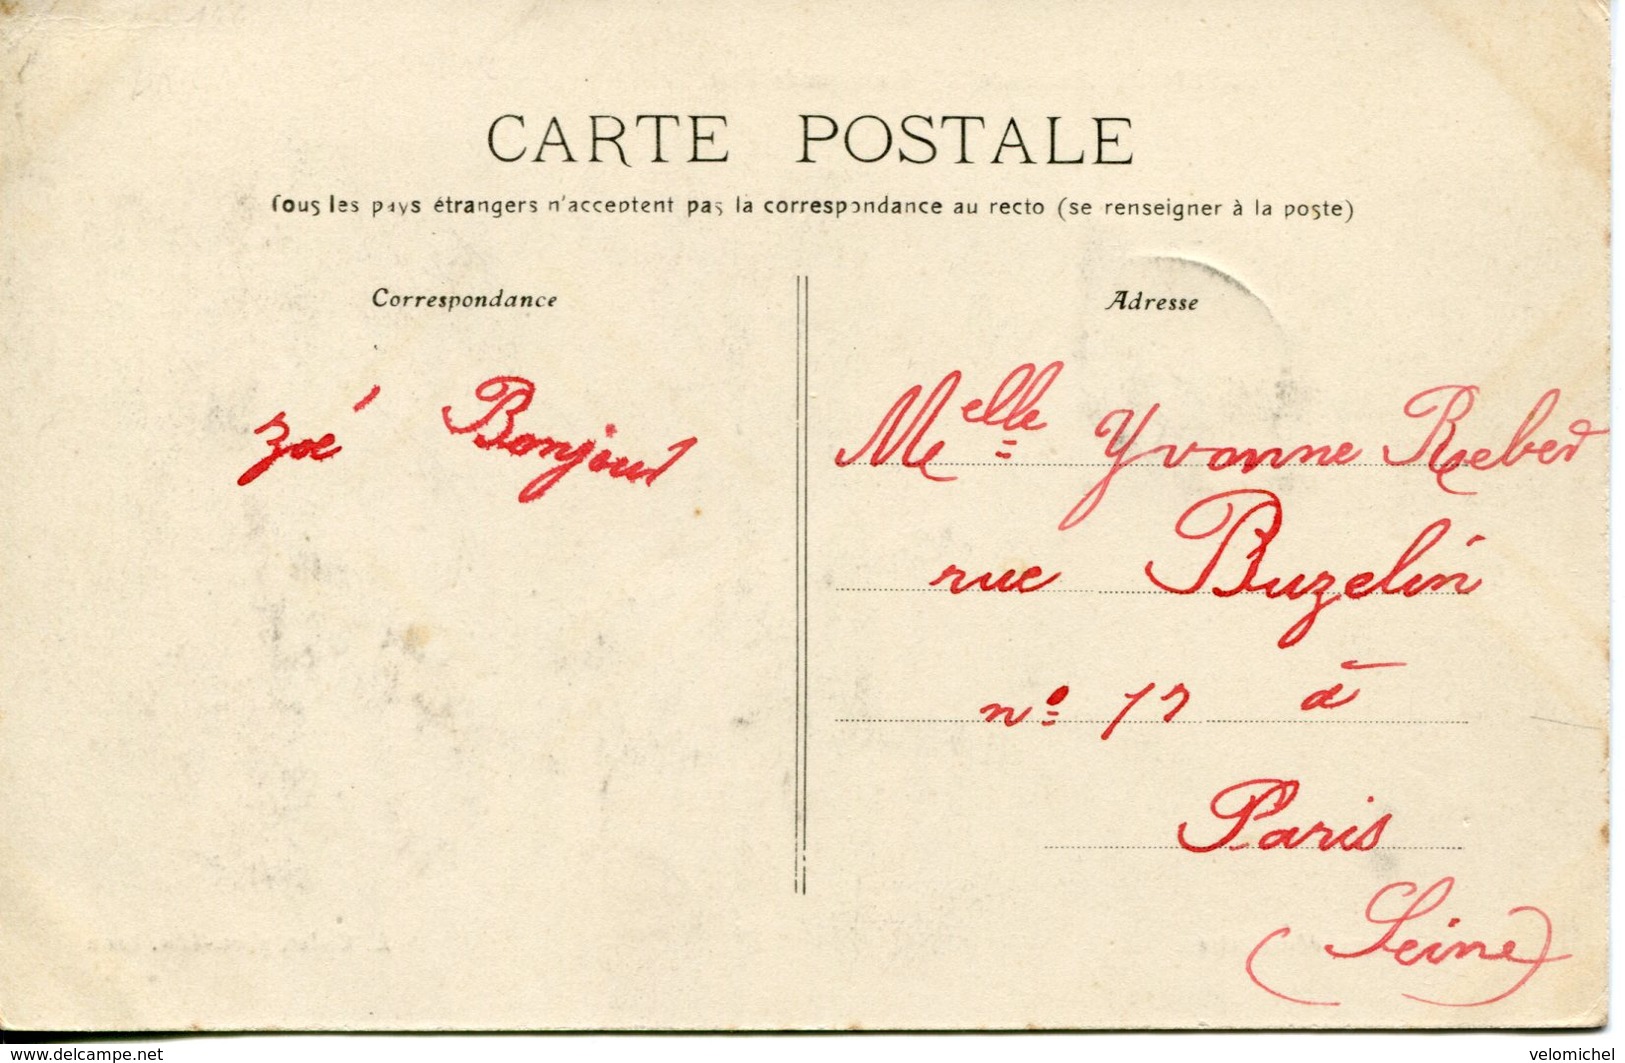 CARTE POSTALE
Tous les pays étrangers n'acceptent pas la correspondance au recto (se renseigner à la poste)
Correspondance
Adresse
zoé Bonjour
Melle Yvonne Reber
rue Buzelin
nº 17 à
Paris
(Seine)
www.delcampe.net
velomichel